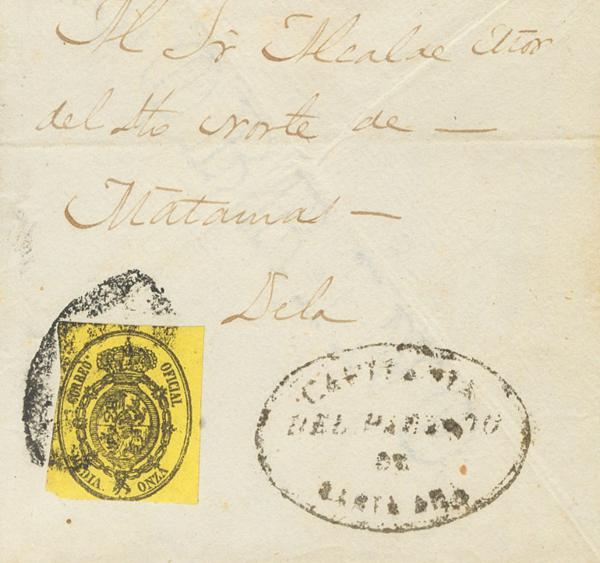 Al Sr Alcalde
del Dto Norte de —
Matanzas —
Dela
CORREO OFICIAL
MEDIA ONZA
CAPITANIA
DEL PARTIDO
DE
SANTA ANA